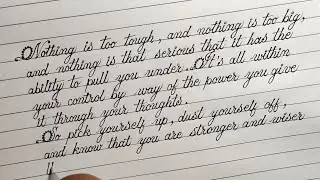 Nothing is too tough, and nothing is too big,
and nothing is that serious that it has the
ability to pull you under. It's all within
your control by way of the power you give
it through your thoughts.
So pick yourself up, dust yourself off,
and know that you are stronger and wiser